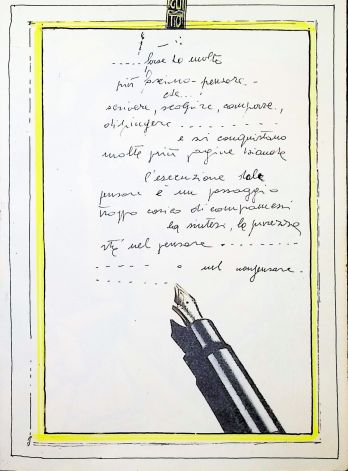 CU
TIO
forse ho molto
più bisogno pensare
che...
scrivere, scolpire, comporre,
dipingere
e si conquistano
molte più pagine bianche
l'esecuzione del
pensare è un passaggio
troppo carico di compromessi
la sintesi, la purezza
sta nel pensare
o nel non pensare